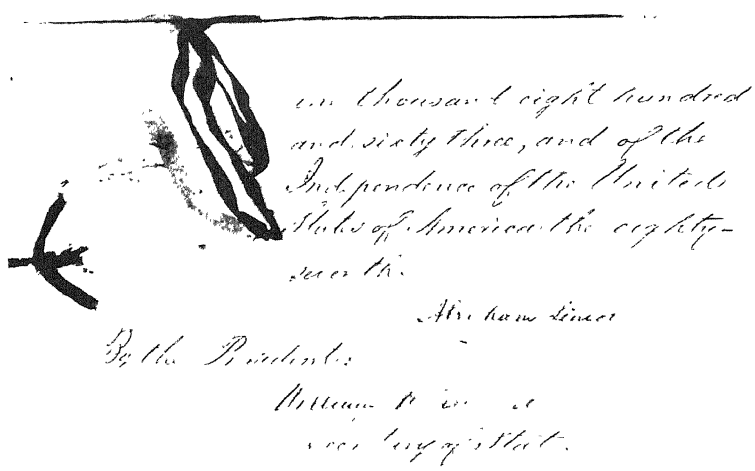 one thousand eight hundred
and sixty three, and of the
Independence of the United
States of America the eighty-
seventh.
Abraham Lincoln
By the President:
William H. Seward
Secretary of State.